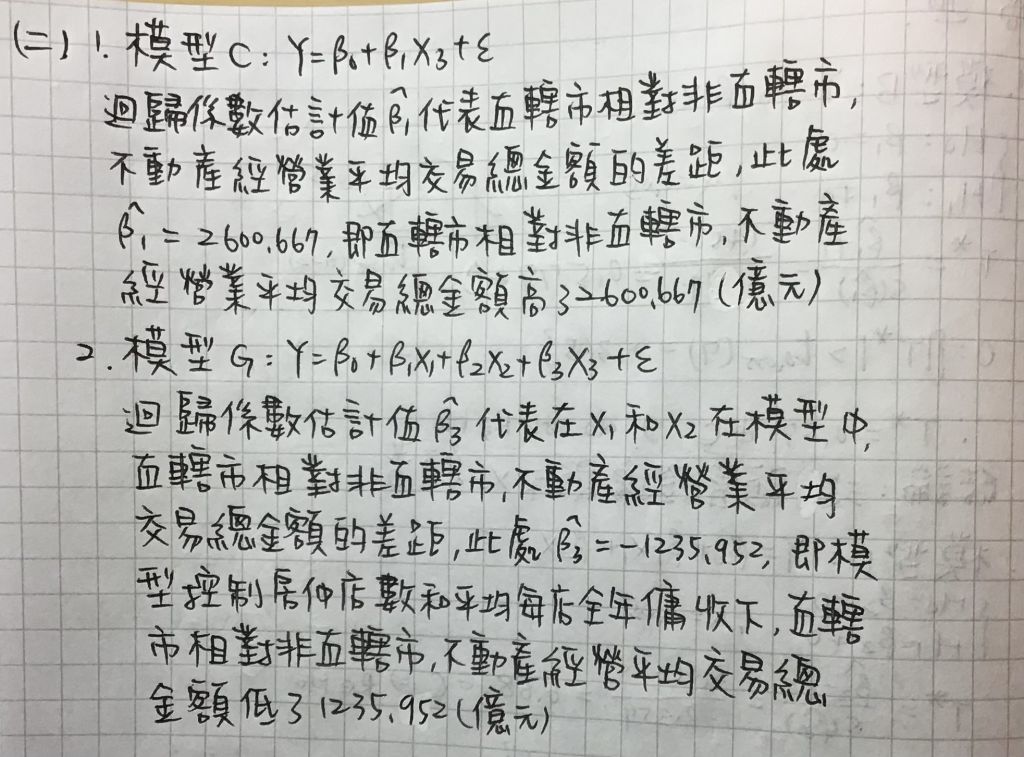 (二) 1. 模型 C: Y=β₀+β₁X₃+ε
迴歸係數估計值β̂₁代表直轄市相對非直轄市,
不動產經營業平均交易總金額的差距,此處
β̂₁=2600.667,即直轄市相對非直轄市,不動產
經營業平均交易總金額高了2600.667(億元)
2. 模型 G: Y=β₀+β₁X₁+β₂X₂+β₃X₃+ε
迴歸係數估計值β̂₃代表在X₁和X₂在模型中,
直轄市相對非直轄市,不動產經營業平均
交易總金額的差距,此處β̂₃=-1235.952,即模
型控制房仲店數和平均每店全年傭收下,直轄
市相對非直轄市,不動產經營平均交易總
金額低了1235.952(億元)